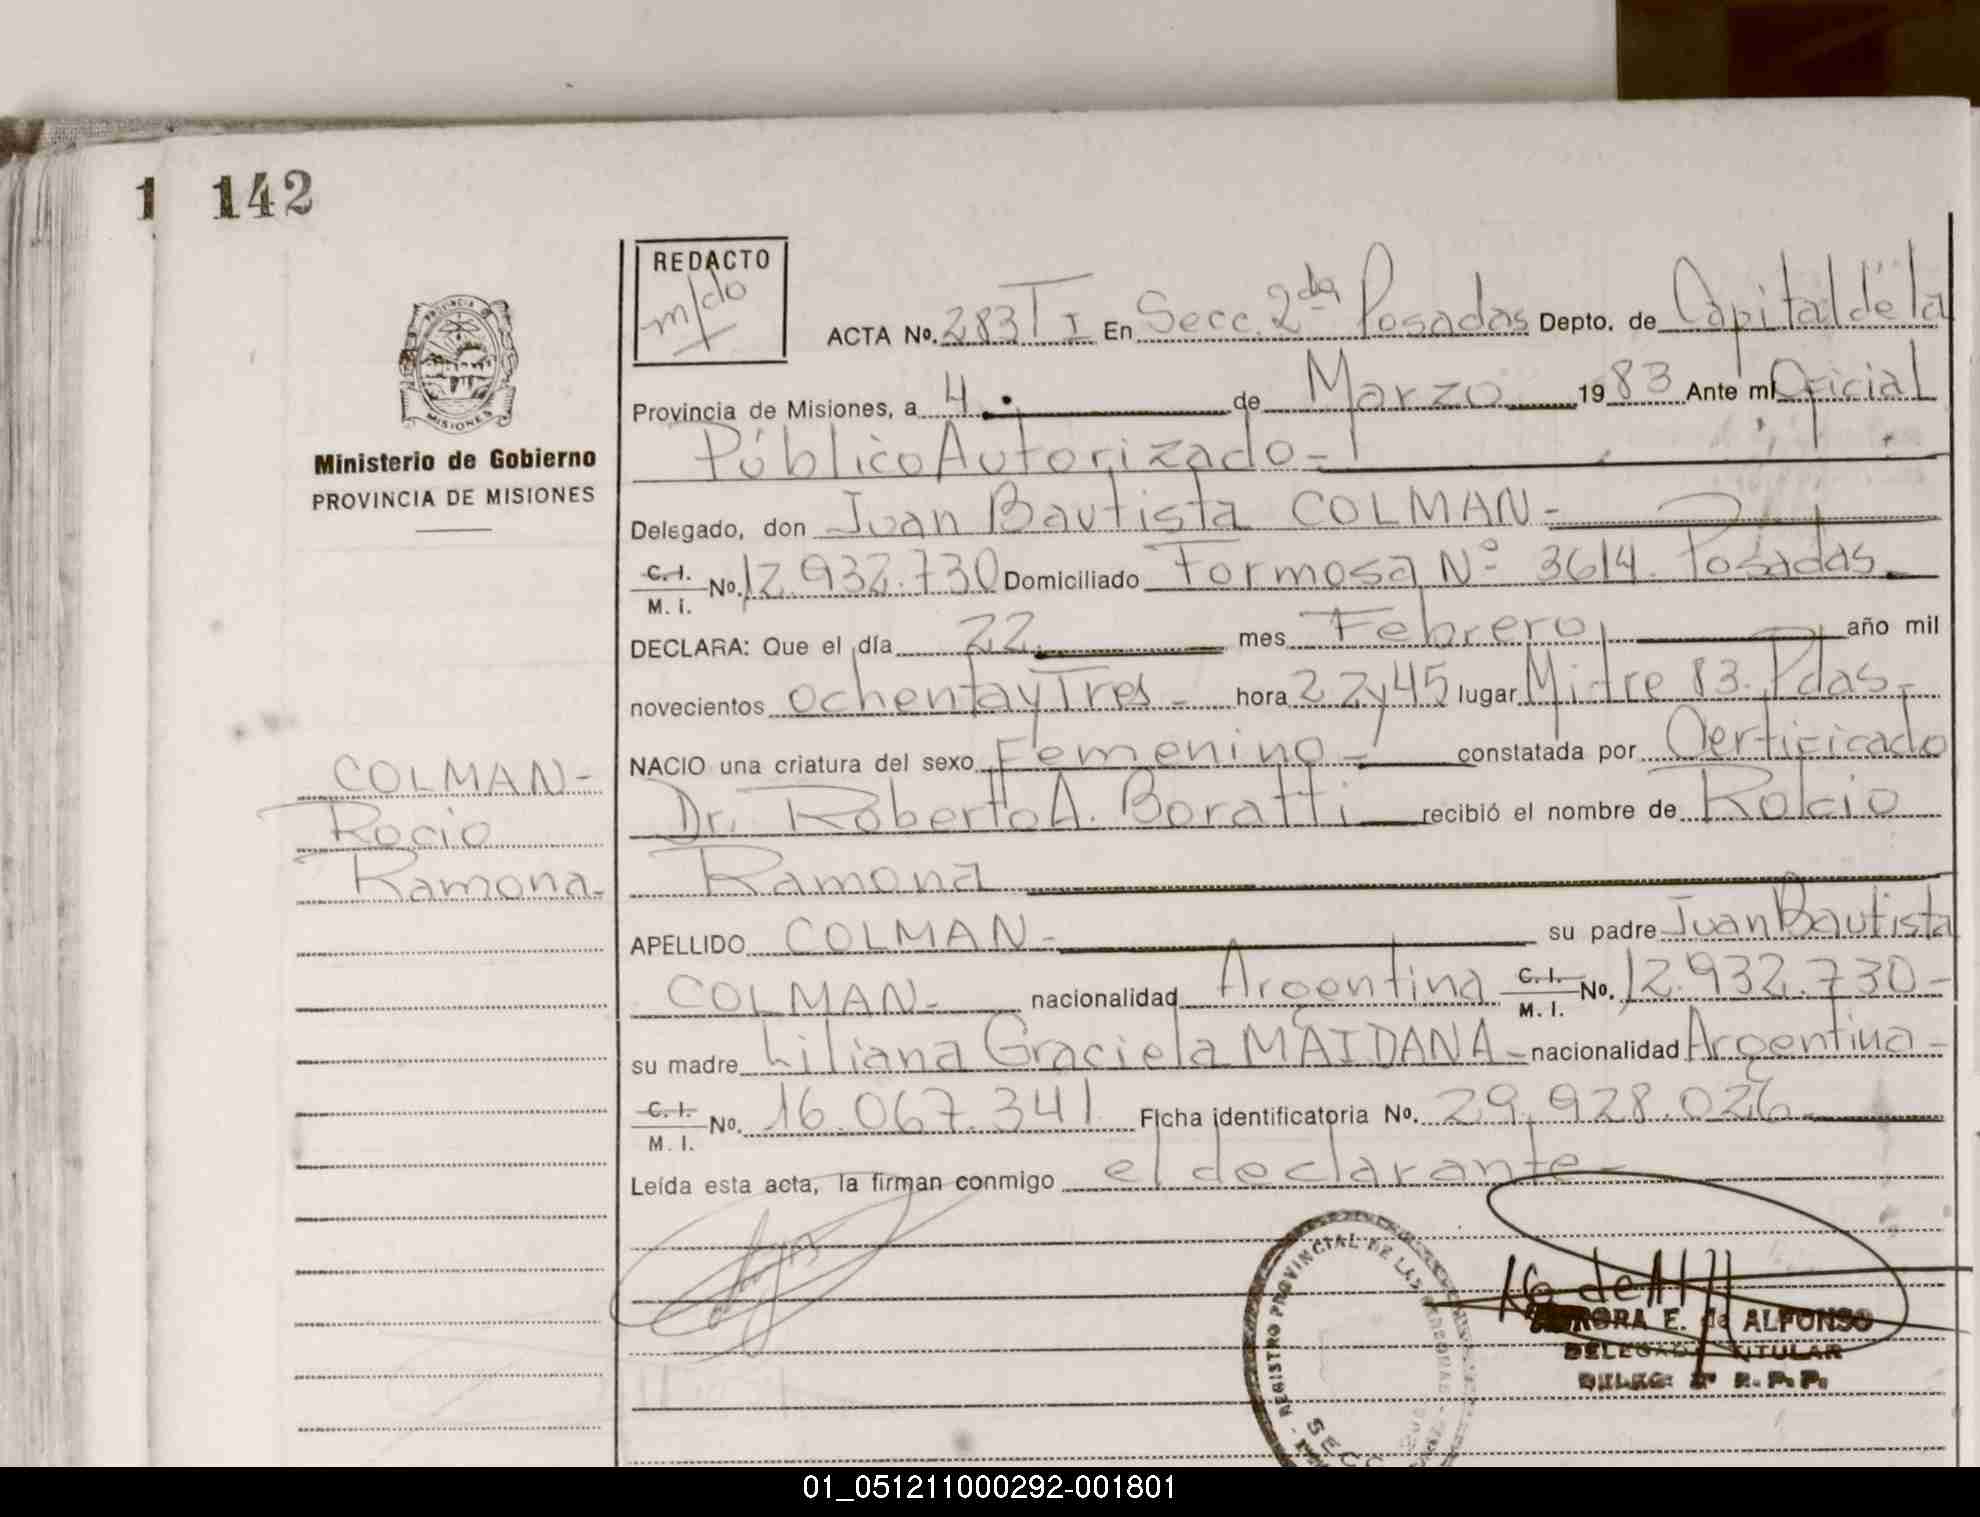 1 142
REDACTO
m/do
PROVINCIA
MISIONES
Ministerio de Gobierno
PROVINCIA DE MISIONES
ACTA No. 283 T I En Secc. 2da Posadas Depto. de Capital de la
Provincia de Misiones, a 4 de Marzo 1983 Ante mí Oficial
Público Autorizado -
Delegado, don Juan Bautista COLMAN -
C. I. M. I. No. 12.932.730 Domiciliado Formosa Nº 3614. Posadas
DECLARA: Que el día 22 mes Febrero año mil
novecientos ochenta y Tres - hora 22 y 45 lugar Mitre 83. Pdas -
NACIO una criatura del sexo Femenino - constatada por Certificado
Dr. Roberto A. Boratti recibió el nombre de Rocio
Ramona
COLMAN -
Rocio
Ramona -
APELLIDO COLMAN - su padre Juan Bautista
COLMAN - nacionalidad Argentina C. I. M. I. No. 12.932.730 -
su madre Liliana Graciela MAIDANA - nacionalidad Argentina -
C. I. M. I. No. 16.067.341 Ficha identificatoria No. 29.928.026
Leída esta acta, la firman conmigo el declarante -
REGISTRO PROVINCIAL DE LAS PERSONAS
SECC
E. de ALFONSO
DELEGADA TITULAR
DELEG. 2ª R. P. P.
01_051211000292-001801